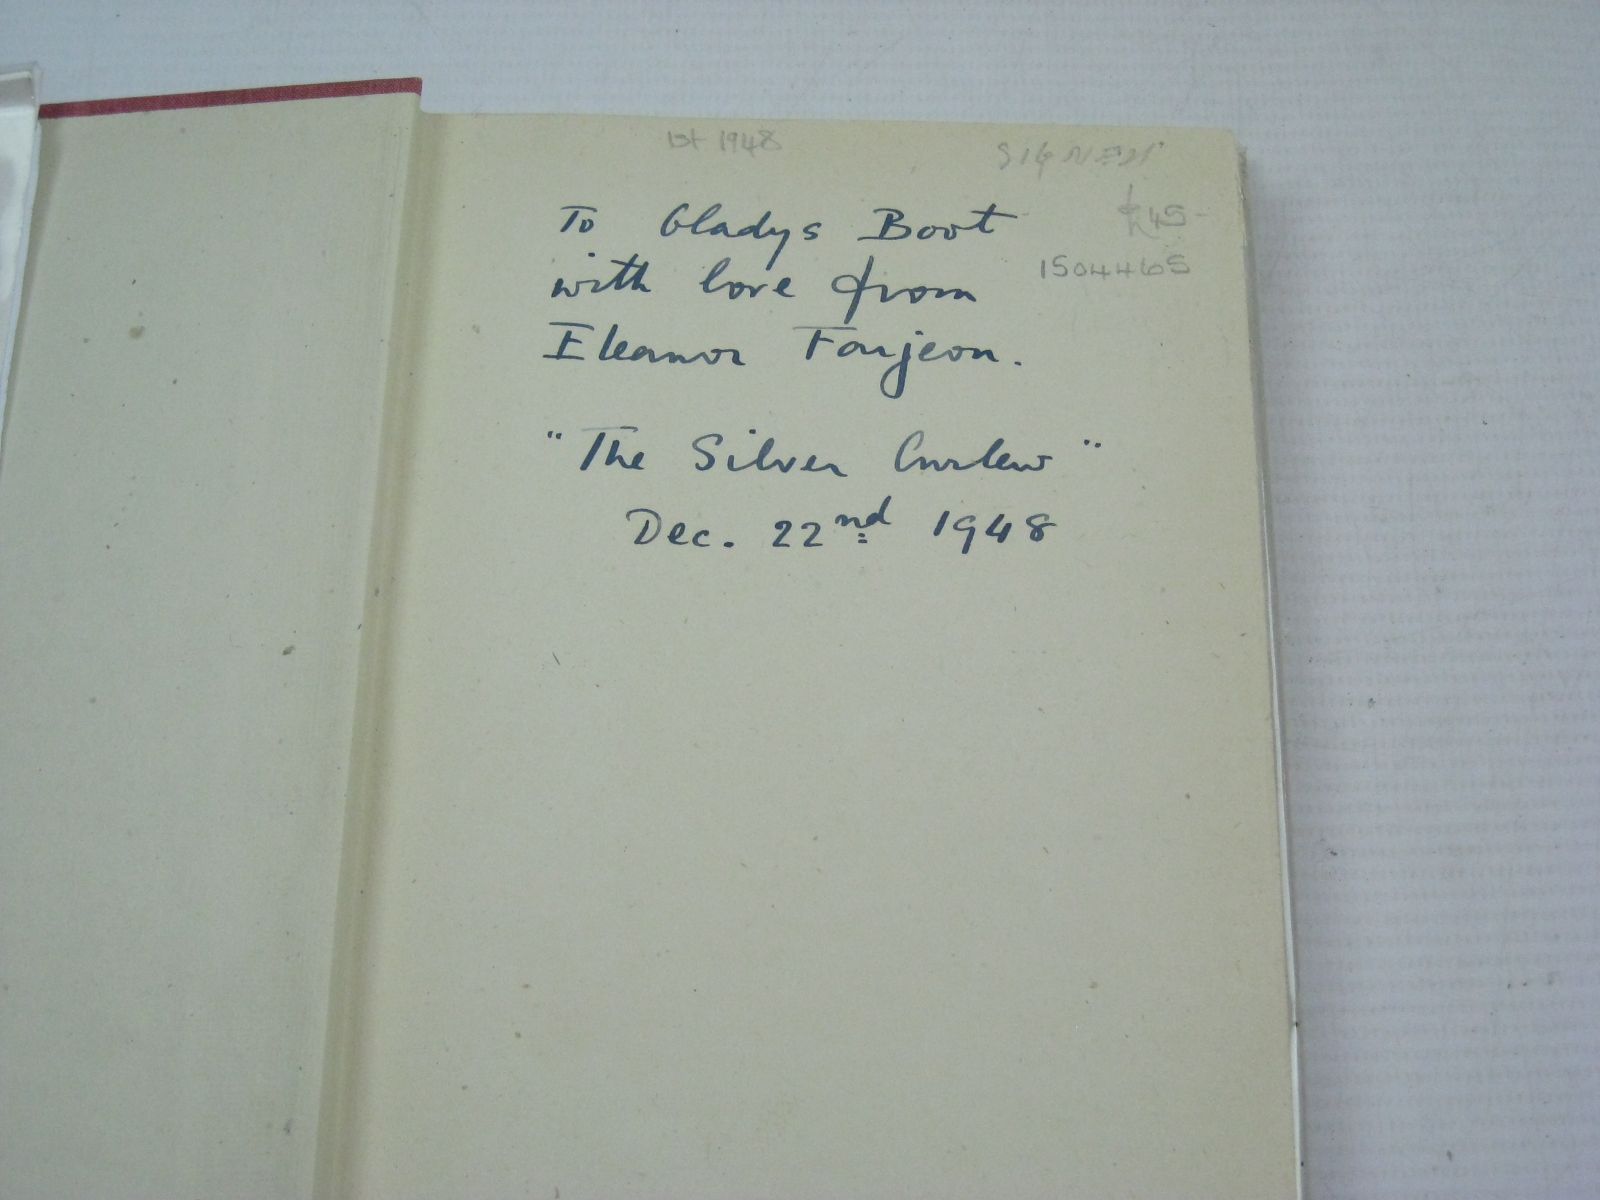 1st 1948
SIGNED
£45-
1504465
To Gladys Boot
with love from
Eleanor Farjeon.
"The Silver Curlew"
Dec. 22nd 1948